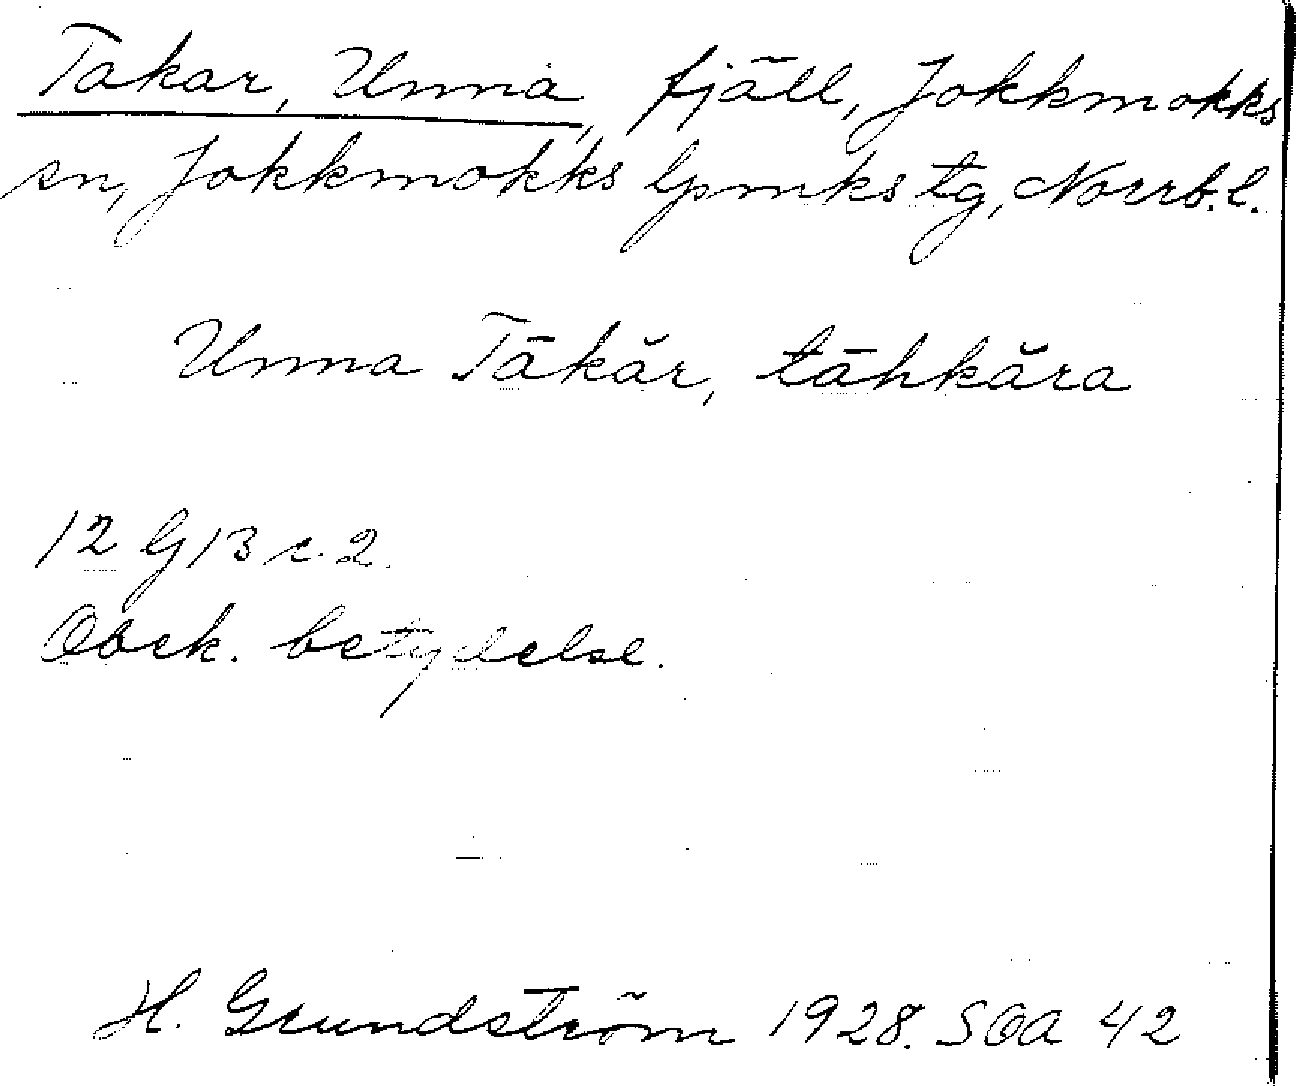 Takar, Unna, fjäll, Jokkmokks
sn, Jokkmokks lpmks tg, Norrb. l.
Unna Tākăr, tāhkăra
12 G 13 c. 2.
Obek. betydelse.
H. Grundström 1928. SOA 42